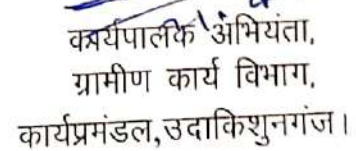 कार्यपालक अभियंता,
ग्रामीण कार्य विभाग,
कार्यप्रमंडल,उदाकिशुनगंज।